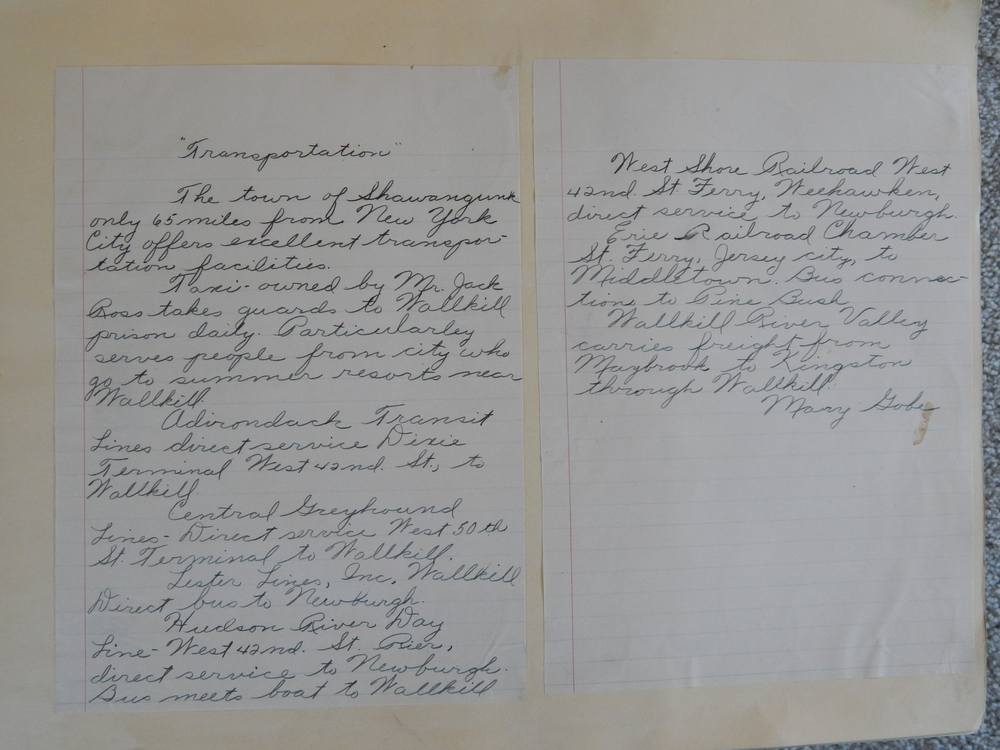 "Transportation"
The town of Shawangunk
only 65 miles from New York
City offers excellent transpor-
tation facilities.
Taxi- owned by Mr. Jack
Ross takes guards to Wallkill
prison daily. Particularley
serves people from city who
go to summer resorts near
Wallkill.
Adirondack Transit
Lines direct service Dixie
Terminal West 42nd. St., to
Wallkill.
Central Greyhound
Lines- Direct service West 50th
St. Terminal to Wallkill.
Lester Lines, Inc, Wallkill
Direct bus to Newburgh.
Hudson River Day
Line- West 42nd. St. Pier,
direct service to Newburgh.
Bus meets boat to Wallkill
West Shore Railroad West
42nd St Ferry, Weehawken,
direct service to Newburgh.
Erie Railroad Chamber
St. Ferry, Jersey city, to
Middletown. Bus connec-
tion to Pine Bush
Wallkill River Valley
carries freight from
Maybrook to Kingston
through Wallkill.
Mary Gobe